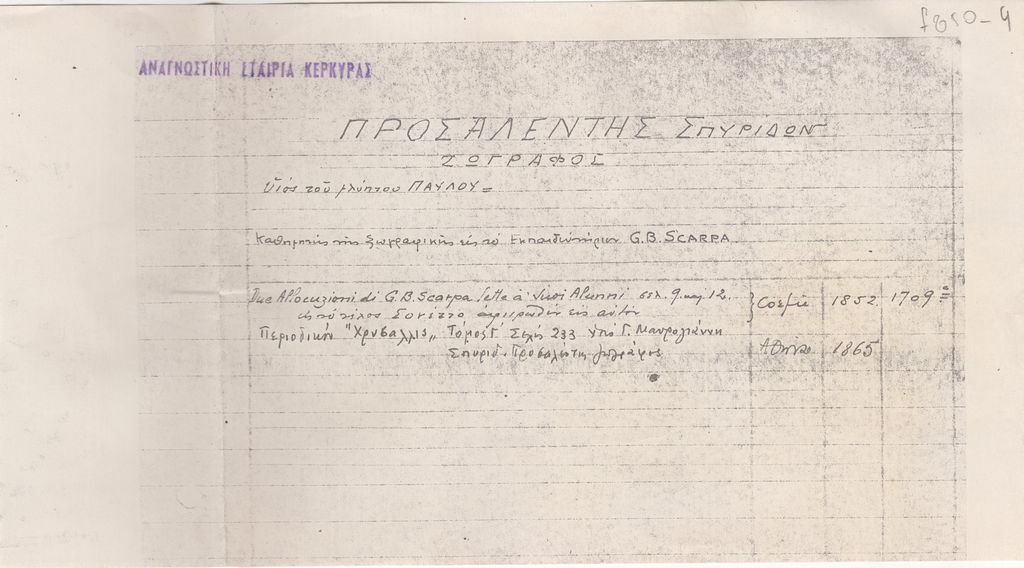 f 810-4
ΑΝΑΓΝΩΣΤΙΚΗ ΕΤΑΙΡΙΑ ΚΕΡΚΥΡΑΣ
ΠΡΟΣΑΛΕΝΤΗΣ ΣΠΥΡΙΔΩΝ
ΖΩΓΡΑΦΟΣ
Υἱός τοῦ γλύπτου ΠΑΥΛΟΥ =
Καθηγητής τῆς ζωγραφικῆς εἰς τό Εκπαιδευτήριον G.B. SCARPA
Due Allocuzioni di G.B. Scarpa lette a' suoi Alunni σελ. 9. και 12. } Corfù 1852. 1709
εἰς τό τέλος Σονέττο ἀφιερωθέν εἰς αὐτόν
Περιοδικόν "Χρυσαλλις„ Τόμος Γ΄ Σελίς 233 Υπό Γ. Μαυρογιάννη
Σπυρίδ. Προσαλέντης ζωγράφος Αθῆναι 1865